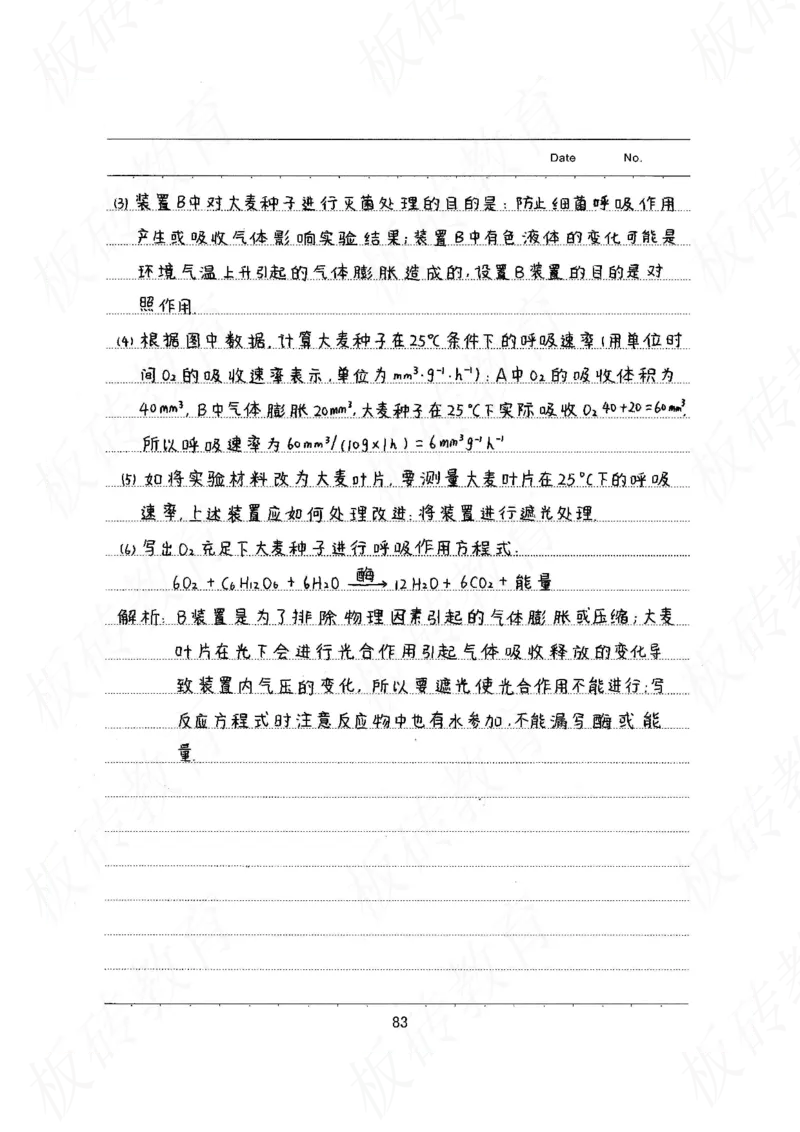 Date No.
(3) 装置B中对大麦种子进行灭菌处理的目的是：防止细菌呼吸作用
产生或吸收气体影响实验结果；装置B中有色液体的变化可能是
环境气温上升引起的气体膨胀造成的，设置B装置的目的是对
照作用.
(4) 根据图中数据，计算大麦种子在25℃条件下的呼吸速率(用单位时
间O₂的吸收速率表示，单位为mm³·g⁻¹·h⁻¹)：A中O₂的吸收体积为
40mm³，B中气体膨胀20mm³，大麦种子在25℃下实际吸收O₂ 40+20=60mm³.
所以呼吸速率为60mm³/(10g×1h)=6mm³g⁻¹h⁻¹
(5) 如将实验材料改为大麦叶片，要测量大麦叶片在25℃下的呼吸
速率，上述装置应如何处理改进：将装置进行遮光处理.
(6) 写出O₂充足下大麦种子进行呼吸作用方程式：
6O₂ + C₆H₁₂O₆ + 6H₂O 酶→ 12H₂O + 6CO₂ + 能量
解析：B装置是为了排除物理因素引起的气体膨胀或压缩；大麦
叶片在光下会进行光合作用引起气体吸收释放的变化导
致装置内气压的变化，所以要遮光使光合作用不能进行；写
反应方程式时注意反应物中也有水参加，不能漏写酶或能
量.
83
板砖教育